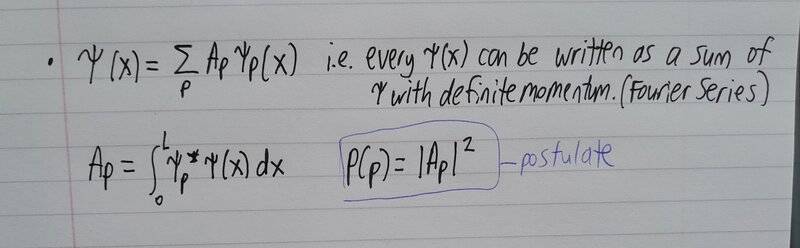 • Ψ(x) = Σ_p A_p Ψ_p(x) i.e. every Ψ(x) can be written as a sum of
Ψ with definite momentum. (Fourier Series)
A_p = ∫_0^L Ψ_p* Ψ(x) dx P(p) = |A_p|² – postulate